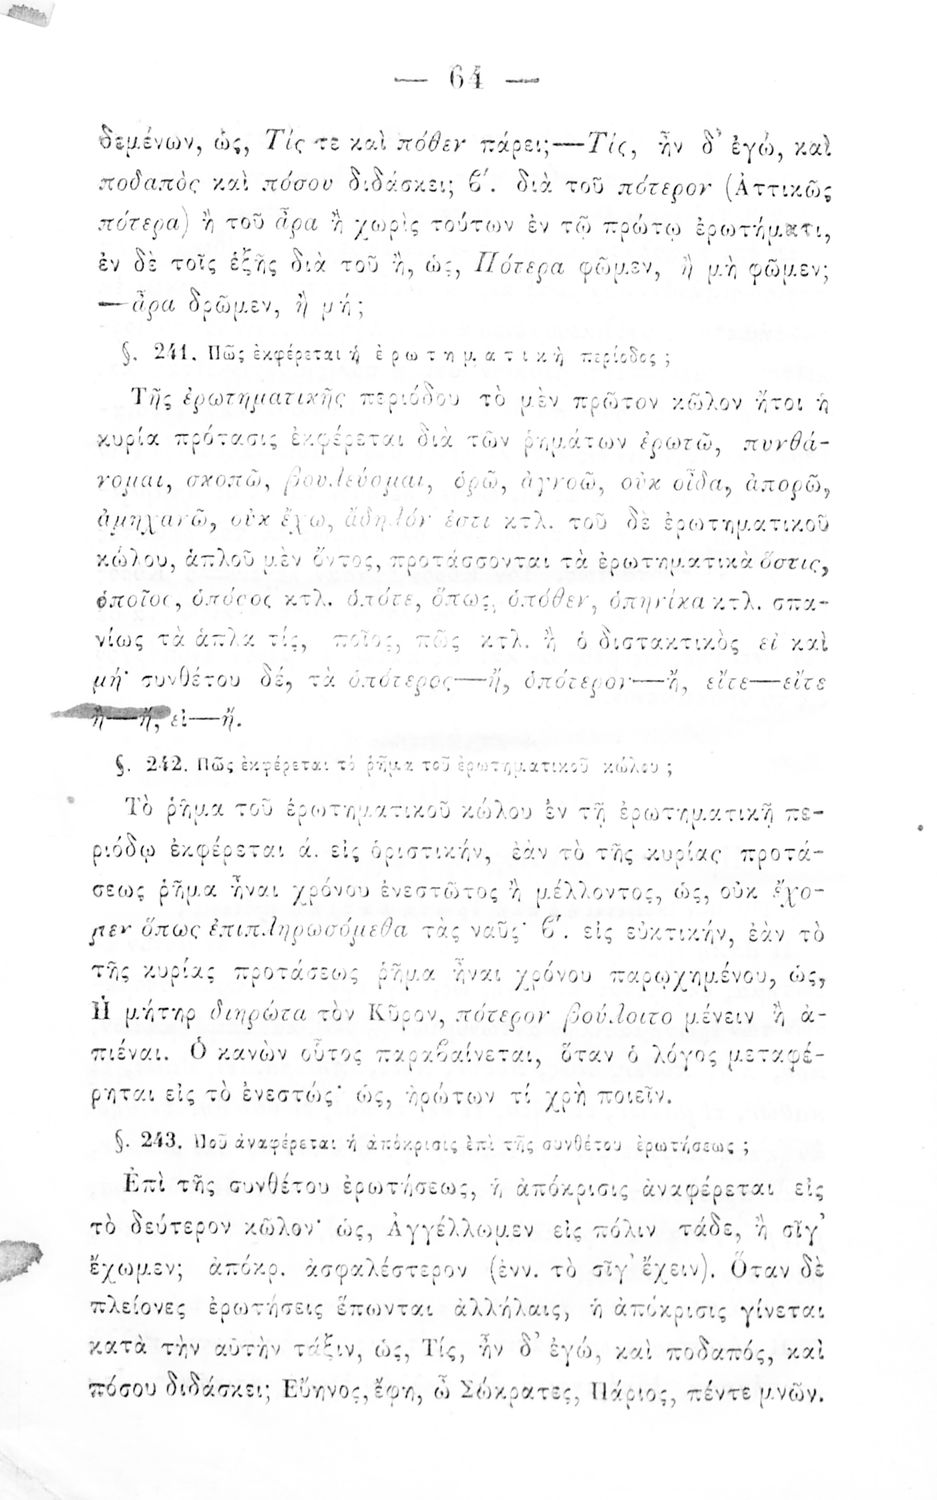 — 64 —
δεμένων, ὡς, Τίς τε καὶ πόθεν πάρει;—Τίς, ἦν δ' ἐγώ, καὶ
ποδαπὸς καὶ πόσου διδάσκει; β΄. διὰ τοῦ πότερον (Ἀττικῶς
πότερα) ἢ τοῦ ἆρα ἢ χωρὶς τούτων ἐν τῷ πρώτῳ ἐρωτήματι,
ἐν δὲ τοῖς ἑξῆς διὰ τοῦ ἢ, ὡς, Πότερα φῶμεν, ἢ μὴ φῶμεν;
—ἆρα δρῶμεν, ἢ μή;
§. 241. Πῶς ἐκφέρεται ἡ ἐρωτηματικὴ περίοδος ;
Τῆς ἐρωτηματικῆς περιόδου τὸ μὲν πρῶτον κῶλον ἤτοι ἡ
κυρία πρότασις ἐκφέρεται διὰ τῶν ῥημάτων ἐρωτῶ, πυνθά-
νομαι, σκοπῶ, βουλεύομαι, ὁρῶ, ἀγνοῶ, οὐκ οἶδα, ἀπορῶ,
ἀμηχανῶ, οὐκ ἔχω, ἄδηλόν ἐστι κτλ. τοῦ δὲ ἐρωτηματικοῦ
κώλου, ἁπλοῦ μὲν ὄντος, προτάσσονται τὰ ἐρωτηματικὰ ὅστις,
ὁποῖος, ὁπόσος κτλ. ὁπότε, ὅπως, ὁπόθεν, ὁπηνίκα κτλ. σπα-
νίως τὰ ἁπλᾶ τίς, ποῖος, πῶς κτλ. ἢ ὁ διστακτικὸς εἰ καὶ
μή· συνθέτου δέ, τὰ ὁπότερος—ἤ, ὁπότερον—ἤ, εἴτε—εἴτε
ἢ—ἤ, εἰ—ἤ.
§. 242. Πῶς ἐκφέρεται τὸ ῥῆμα τοῦ ἐρωτηματικοῦ κώλου ;
Τὸ ῥῆμα τοῦ ἐρωτηματικοῦ κώλου ἐν τῇ ἐρωτηματικῇ πε-
ριόδῳ ἐκφέρεται ά. εἰς ὁριστικήν, ἐὰν τὸ τῆς κυρίας προτά-
σεως ῥῆμα ἦναι χρόνου ἐνεστῶτος ἢ μέλλοντος, ὡς, οὐκ ἔχο-
μεν ὅπως ἐπιπληρωσόμεθα τὰς ναῦς· β΄. εἰς εὐκτικήν, ἐὰν τὸ
τῆς κυρίας προτάσεως ῥῆμα ἦναι χρόνου παρῳχημένου, ὡς,
Ἡ μήτηρ διηρώτα τὸν Κῦρον, πότερον βούλοιτο μένειν ἢ ἀ-
πιέναι. Ὁ κανὼν οὗτος παραβαίνεται, ὅταν ὁ λόγος μεταφέ-
ρηται εἰς τὸ ἐνεστώς· ὡς, ἠρώτων τί χρὴ ποιεῖν.
§. 243. Ποῦ ἀναφέρεται ἡ ἀπόκρισις ἐπὶ τῆς συνθέτου ἐρωτήσεως ;
Ἐπὶ τῆς συνθέτου ἐρωτήσεως, ἡ ἀπόκρισις ἀναφέρεται εἰς
τὸ δεύτερον κῶλον· ὡς, Ἀγγέλλωμεν εἰς πόλιν τάδε, ἢ σῖγ'
ἔχωμεν; ἀπόκρ. ἀσφαλέστερον (ἐνν. τὸ σῖγ' ἔχειν). Ὅταν δὲ
πλείονες ἐρωτήσεις ἕπωνται ἀλλήλαις, ἡ ἀπόκρισις γίνεται
κατὰ τὴν αὐτὴν τάξιν, ὡς, Τίς, ἦν δ' ἐγώ, καὶ ποδαπός, καὶ
πόσου διδάσκει; Εὔηνος, ἔφη, ὦ Σώκρατες, Πάριος, πέντε μνῶν.